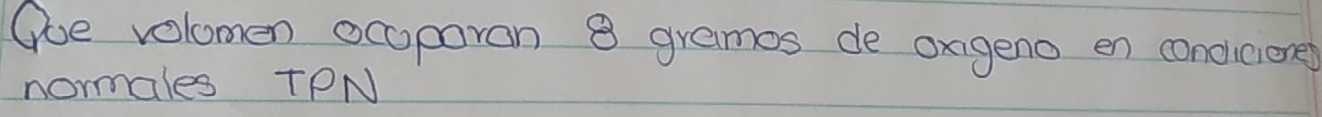 Que volumen ocuparan 8 gramos de oxigeno en condiciones
normales TPN